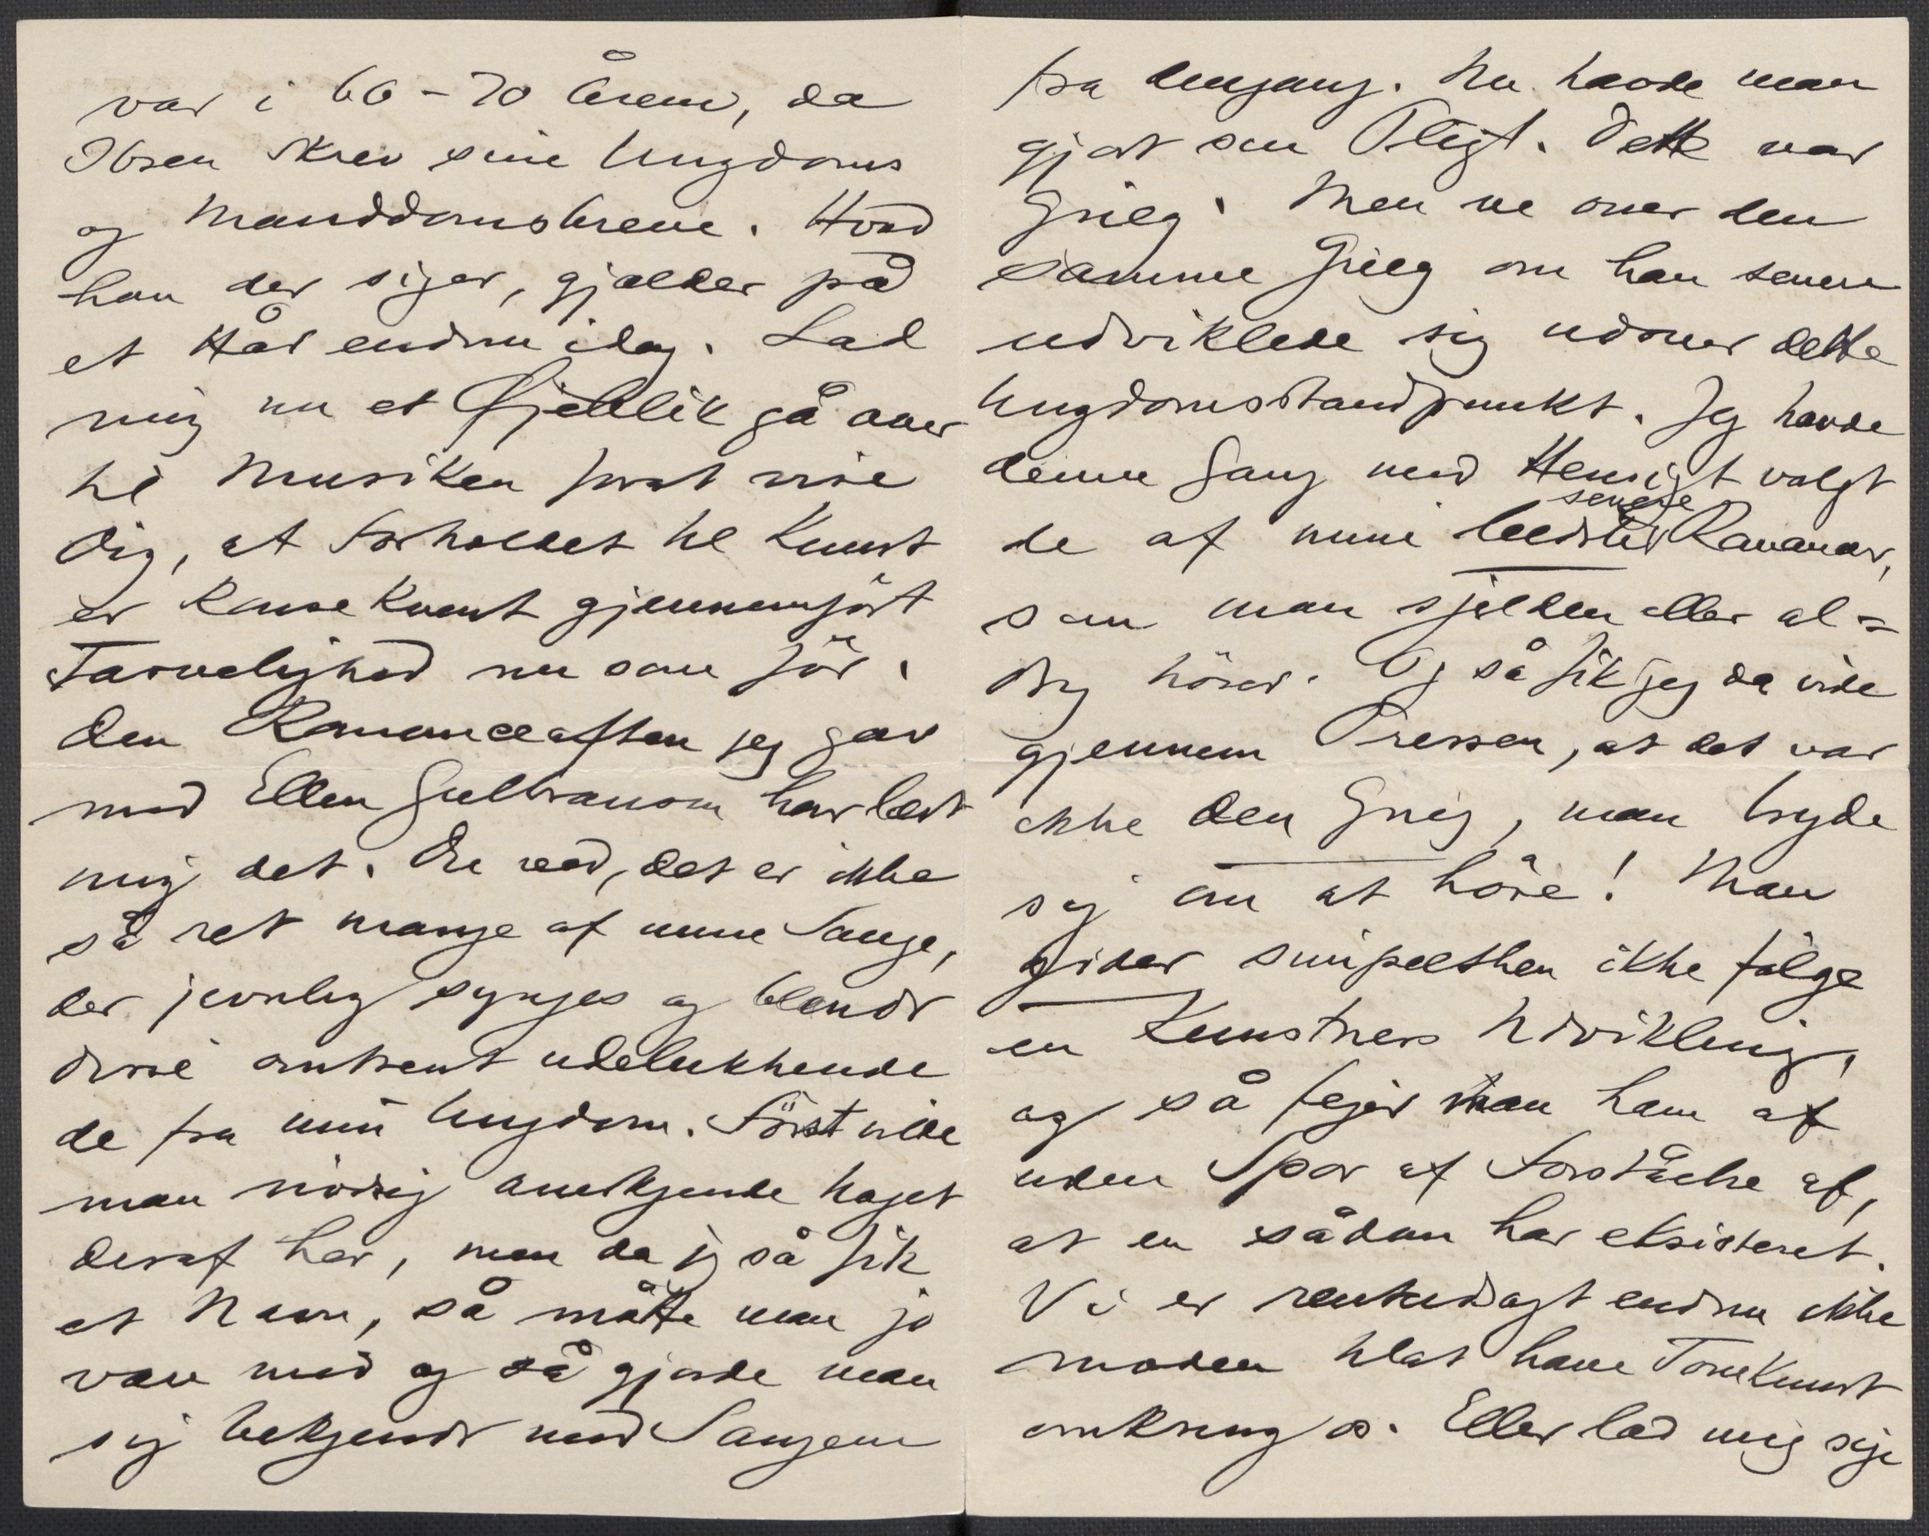 var i 60-70 Årene, da
Ibsen skrev sine Ungdoms
og Manddomsbreve. Hvad
han der siger, gjælder på
et Hår endnu idag. Lad
mig nu et Øjeblik gå over
til Musiken forat vise
Dig, at Forholdet til Kunst
er konsekvent gjennemført
Tarvelighed nu som før.
Den Romanceaften jeg gav
med Ellen Gulbranson har lært
mig det. Du ved, det er ikke
så ret mange af mine Sange,
der jevnlig synges og blandt
disse omtrent udelukkende
de fra min Ungdom. Først vilde
man nødig anerkjende Noget
deraf her, men da jeg så fik
et Navn, så måtte man jo
være med og så gjorde man
sig bekjendt med Sangene
fra dengang. Nu havde man
gjort sin Pligt. Dette var
Grieg. Men ve over den
samme Grieg om han senere
udviklede sig udover dette
Ungdomsstandpunkt. Jeg havde
denne Gang med Hensigt valgt
senere
de af mine bedste Romancer,
som man sjelden eller al=
drig hører. Og så fik jeg da vide
gjennem Pressen, at det var
ikke den Grieg, man bryde
sig om at høre! Man
gider simpelthen ikke følge
en Kunstners Udvikling,
og så fejer man ham af
uden Spor af Forståelse af,
at en sådan har eksisteret.
Vi er rentudsagt endnu ikke
moden til at have Tonekunst
omkring os. Eller lad mig sige